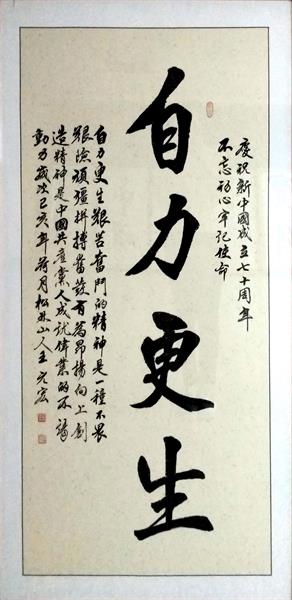 慶祝新中國成立七十周年
不忘初心牢记使命
自力更生
自力更生艱苦奮鬥的精神是一種不畏
艱險頑彊拼搏奮發有為昂揚向上創
造精神是中國共產黨人成就偉業的不竭
動力歲次己亥年荷月松林山人王元宏